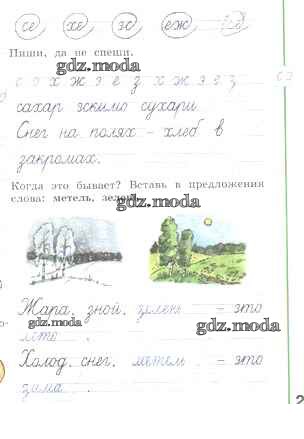 се хе зс еж
Пиши, да не спеши.
gdz.moda
с о х ж э е з х ж э е з
сахар эскимо сухари
gdz.moda
Снег на полях – хлеб в
закромах.
Когда это бывает? Вставь в предложения
слова: метель,
gdz.moda
Жара, зной, зелень – это
gdz.moda
лето.
gdz.moda
Холод, снег, метель – это
зима.
2